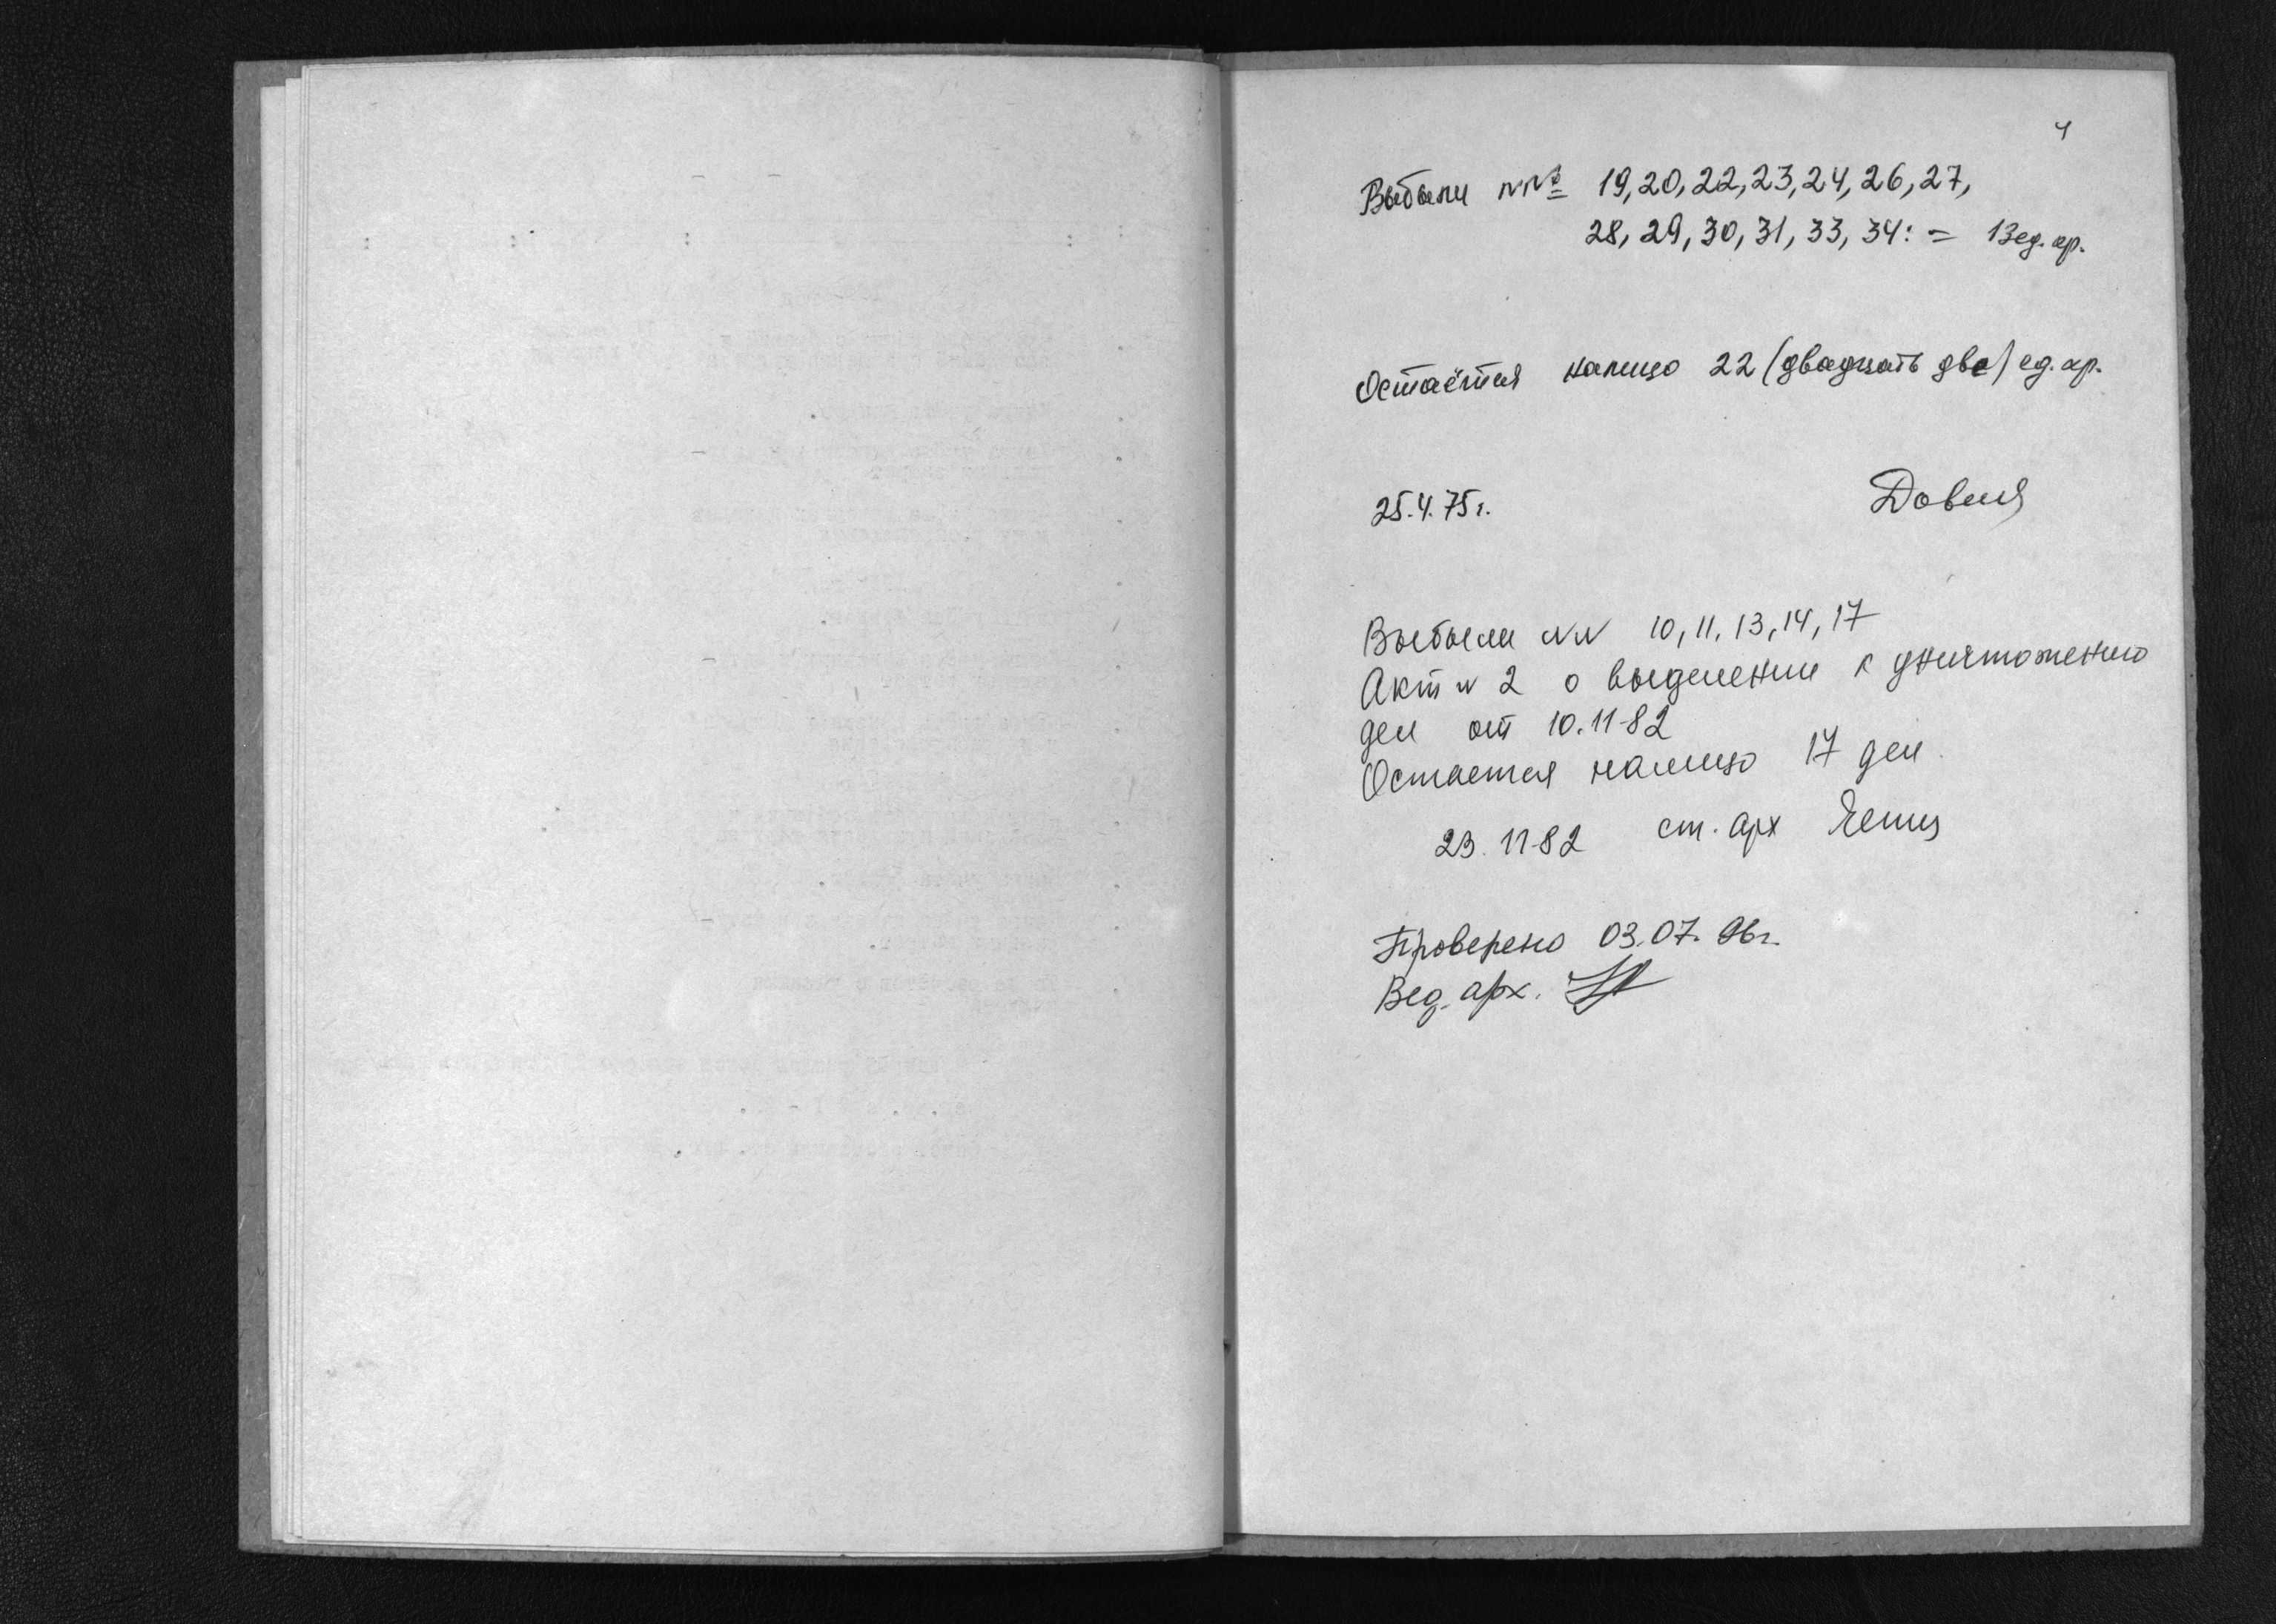 4
Выбыли №№ 19, 20, 22, 23, 24, 26, 27,
28, 29, 30, 31, 33, 34: = 13 ед. хр.
Остаётся налицо 22 (двадцать две) ед. хр.
25.4.75 г.
Выбыли NN 10, 11, 13, 14, 17
Акт N 2 о выделении к уничтожению
дел от 10.11-82
Остается налицо 17 дел.
23.11-82 ст. арх
Проверено 03.07.96г.
Вед. арх.